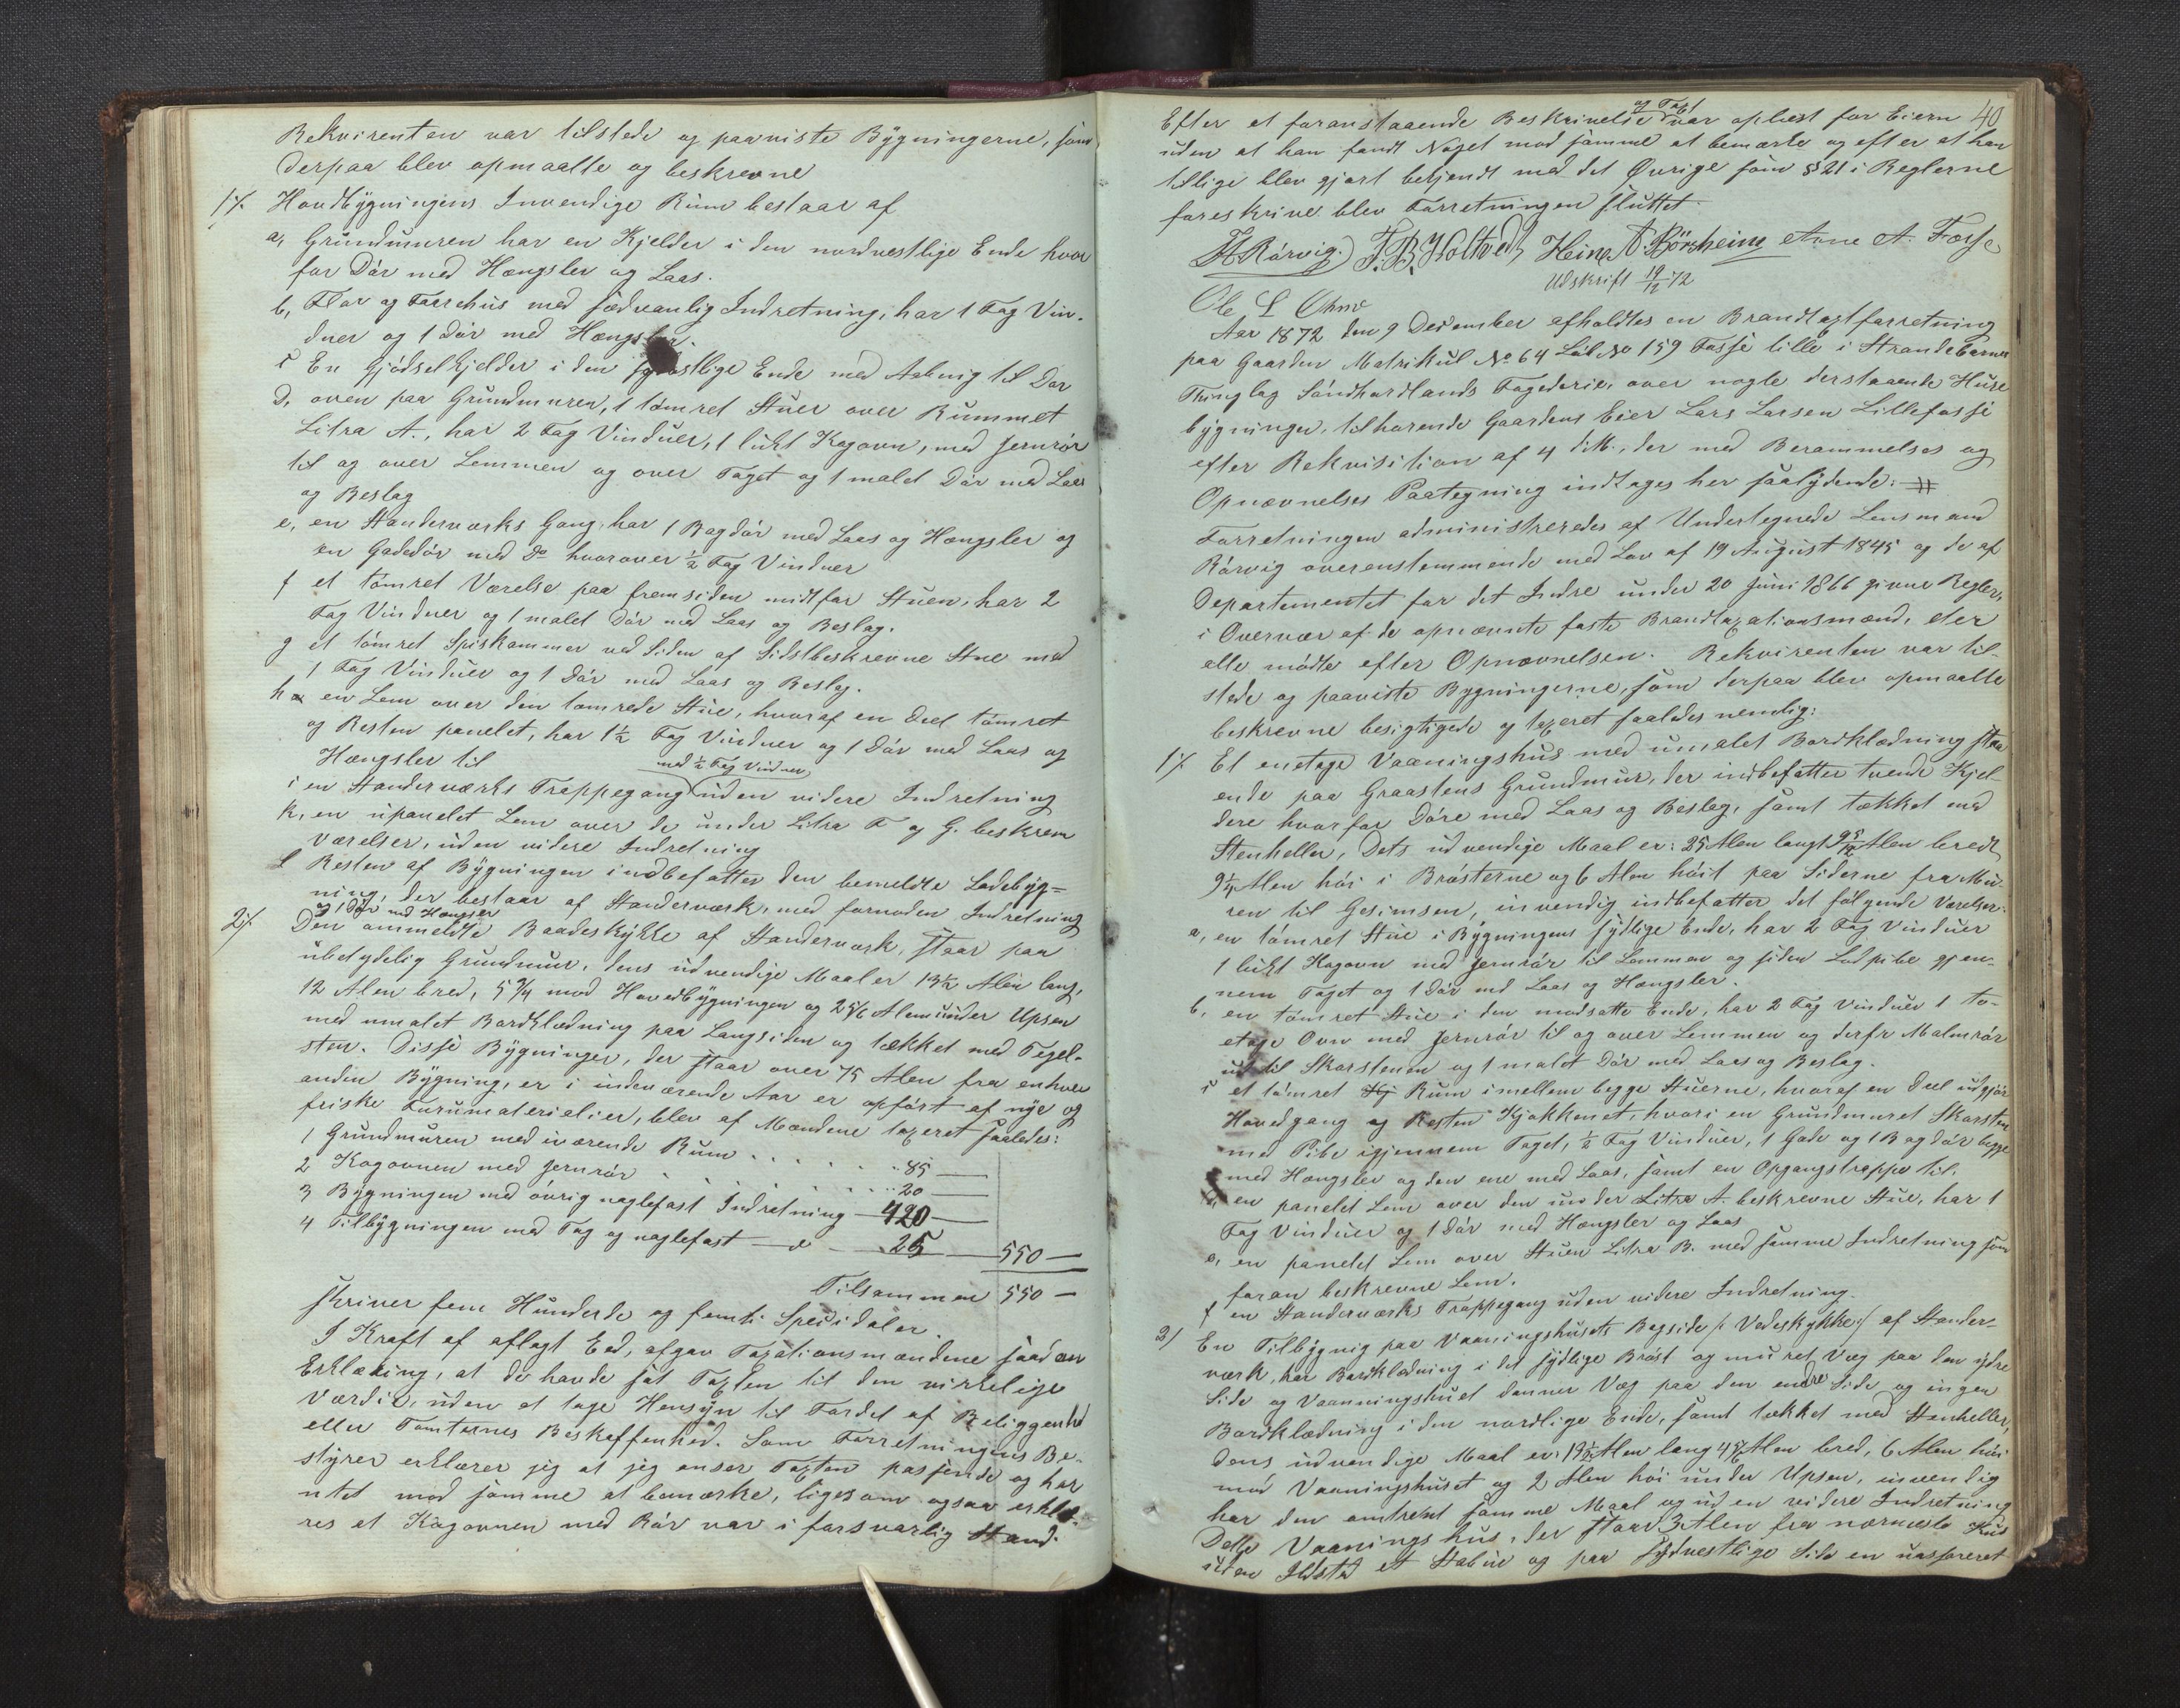 Rekvirenten var tilstede og paaviste Bygningerne, som
derpaa blev opmaalte og beskrevne
1/. Hovdbygningens Invendige Rum bestaar af
a, Grundmuren har en Kjelder i den nordvestlige Ende hvor
for Dør med Hængsler og Laas.
b, Flor og Forrehus med sædvanlig Indretning, har 1 Fag Vin-
duer og 1 Dør med Hængsler.
c En Gjødselkjelder i den sydostlige Ende med Aabnig til Dør
d, oven paa Grundmuren, 1 tømret Stuer over Rummet
Litra A., har 2 Fag Vinduer, 1 lukt Kogovn, med Jernrør
til og over Lemmen og over Taget og 1 malet Dør med Laas
og Beslag
e, en Standerværks Gang, har 1 Bagdør med Laas og Hængsler og
en Gadedør med Do hvorover ½ Fag Vinduer
f et tømret Værelse paa fremsiden midtfor Stuen, har 2
Fag Vinduer og 1 malet Dør med Laas og Beslag.
g et tømret Spiskammer ved Siden af Sidstbeskrevne Stue med
1 Fag Vinduer og 1 Dør med Laas og Beslag.
h en Lem over den tømrede Stue, hvoraf en Deel tømret
og Resten panelet, har 1½ Fag Vinduer og 1 Dør med Laas og
Hængsler til
med ½ Fag Vinduer,
i en Standerværks Trappegang uden videre Indretning
k, en upanelet Lem over de under Litra F og G. beskrevn
Værelser, uden videre Indretning
l Resten af Bygningen indbefatter den bemeldte Ladebyg=
ning, der bestaar af Standerværk, med fornøden Indretning
og 1 Dør med Hængser
2/. Den ommeldte Baadeskykke af Standerværk, staar paa
ubetydelig Grundmur, dens udvendige Maal er 13½ Alen lang,
12 Alen bred, 5¾ mod Hovedbygningen og 2⅚ Alen under Upsen
med umalet Bordklædning paa Langsiden og tækket med Tegel-
sten. Disse Bygninger, der staar over 75 Alen fra enhver
anden Bygning, er i indeværende Aar er opført af nye og
friske Furumaterialier, blev af Mændene taxeret saaledes:
1 Grundmuren med iværende Rum . . . . . . . 85 —
2 Kogovnen med Jernrør . . . . . . . 20 —
3 Bygningen med øvrig naglefast Indretning — 420 —
4 Tilbygningen med Tag og naglefast — d — 25 — 550 —
Tilsammen 550 —
skriver fem Hunderde og femti Speidaler.
I Kraft af aflagt Eed, afgav Taxationsmændene saadan
Erklæring, at de havde sat Taxten til den virkelige
Værdie, uden at tage Hensyn til Fordel af Beliggenhd
eller Tomternes Beskaffenhed. Som Forretningens Be-
styrer erklærer jeg at jeg anser Taxten passende og har
ntet mod samme at bemærke, ligesom ogsaa erklæ-
res at Kogovnen med Rør var i forsvarlig Stand.
40
og Taxt
Efter at foranstaaende Beskrivelse var oplæst for Eiern
uden at han fandt Noget mod samme at bemærke og efter at han
tillige blev gjort bekjendt med det Øvrige som §§ 21 i Reglerne
foreskrive blev Forretningen sluttet.
H Rørvig. T. B. Holtvedt Heine N. Børsheim Arne A. Fosse
Udskrift 19/12 72
Ole L
Aar 1872 den 9 December afholdtes en Brandtaxtforretning
paa Gaarden Matrikul No 64 Løb No 159 Fosse lille i Strandebarms
Thinglag Søndhordlands Fogederie, over nogle derstaaende Huse
bygninger, tilhørende Gaardens Eier Lars Larsen Lillefosse
efter Rekvisition af 4 d.M., der med Berammelses og
Opnævnelses Paategning indtages her saalydende: #
Forretningen administreredes af Undertegnede Lensmand
Rørvig overenstemmende med Lov af 19 August 1845 og de af
Departementet for det Indre under 20 Juni 1866 givne Regler,
i Overvær af de opnævnte faste Brandtaxationsmænd, der
alle mødte efter Opnævnelsen. Rekvirenten var til-
stede og paaviste Bygningerne, som derpaa blev opmaalte
beskrevne besigtigede og taxeret saaledes nemlig:
1/. Et enetage Vaaningshus med umalet Bordklædning staa
ende paa Graastens Grundmur, der indbefatter tvende Kjel-
dere hvorfor Døre med Laas og Beslag, samt tækket med
Stenheller, Dets udvendige Maal er: 25 Alen langt 9 5/12 Alen bredt
9¼ Alen høi i Brøsterne og 6 Alen høit paa Siderne fra Mu-
ren til Gesimsen, invendig indbefatter det følgende Værelser:
a, en tømret Stue i Bygningens sydlige Ende, har 2 Fag Vinduer
1 lukt Kogovn med Jernrør til Lemmen og siden Ladpibe gjen-
nem Taget og 1 Dør med Laas og Hængsler.
b, en tømret Stue i den modsatte Ende, har 2 Fag Vinduer 1 to-
etage Ovn med Jernrør til og over Lemmen og derfr Malmrør
ud til Skorstenen og 1 malet Dør med Laas og Beslag.
c et tømret Rum imellem begge Stuerne, hvoraf en Deel udgjør
Hovedgang og Resten Kjøkkenet, hvori en Grundmuret Skorsten
med Pibe igjennem Taget, ½ Fag Vinduer, 1 Gade og 1 Bagdør begge
med Hængsler og den ene med Laas, samt en Opgangstrappe til.
d, en panelet Lem over den under Litra A. beskrevne Stue, har 1
Fag Vinduer og 1 Dør med Hængsler og Laas
e, en panelet Lem over Stuen Litra B. med samme Indretning som
foran beskrevne Lem.
f en Standerværks Trappegang uden videre Indretning.
2/ En Tilbygnig paa Vaaningshusets Bagside /: Vedeskykke :/ af Stander-
værk, har Bordklædning i det sydlige Brøst og muret Væg paa den ydre
Side og Vaaningshuset danner Væg paa den endre Side og ingen
Bordklædning i den nordlige Ende, samt tækket med Stenheller,
dens udvendige Maal er: 19½ Alen lang 4⅚ Alen bred, 6 Alen høi
mod Vaaningshuset og 2 Alen høi under Upsen, invendig
har den omtrent samme Maal og uden videre Indretning
Dette Vaaningshus, der staar 3 Alen fra nærmeste Hus
uden Ildsted et Stabur og paa Sydvestlige Side en uassureret